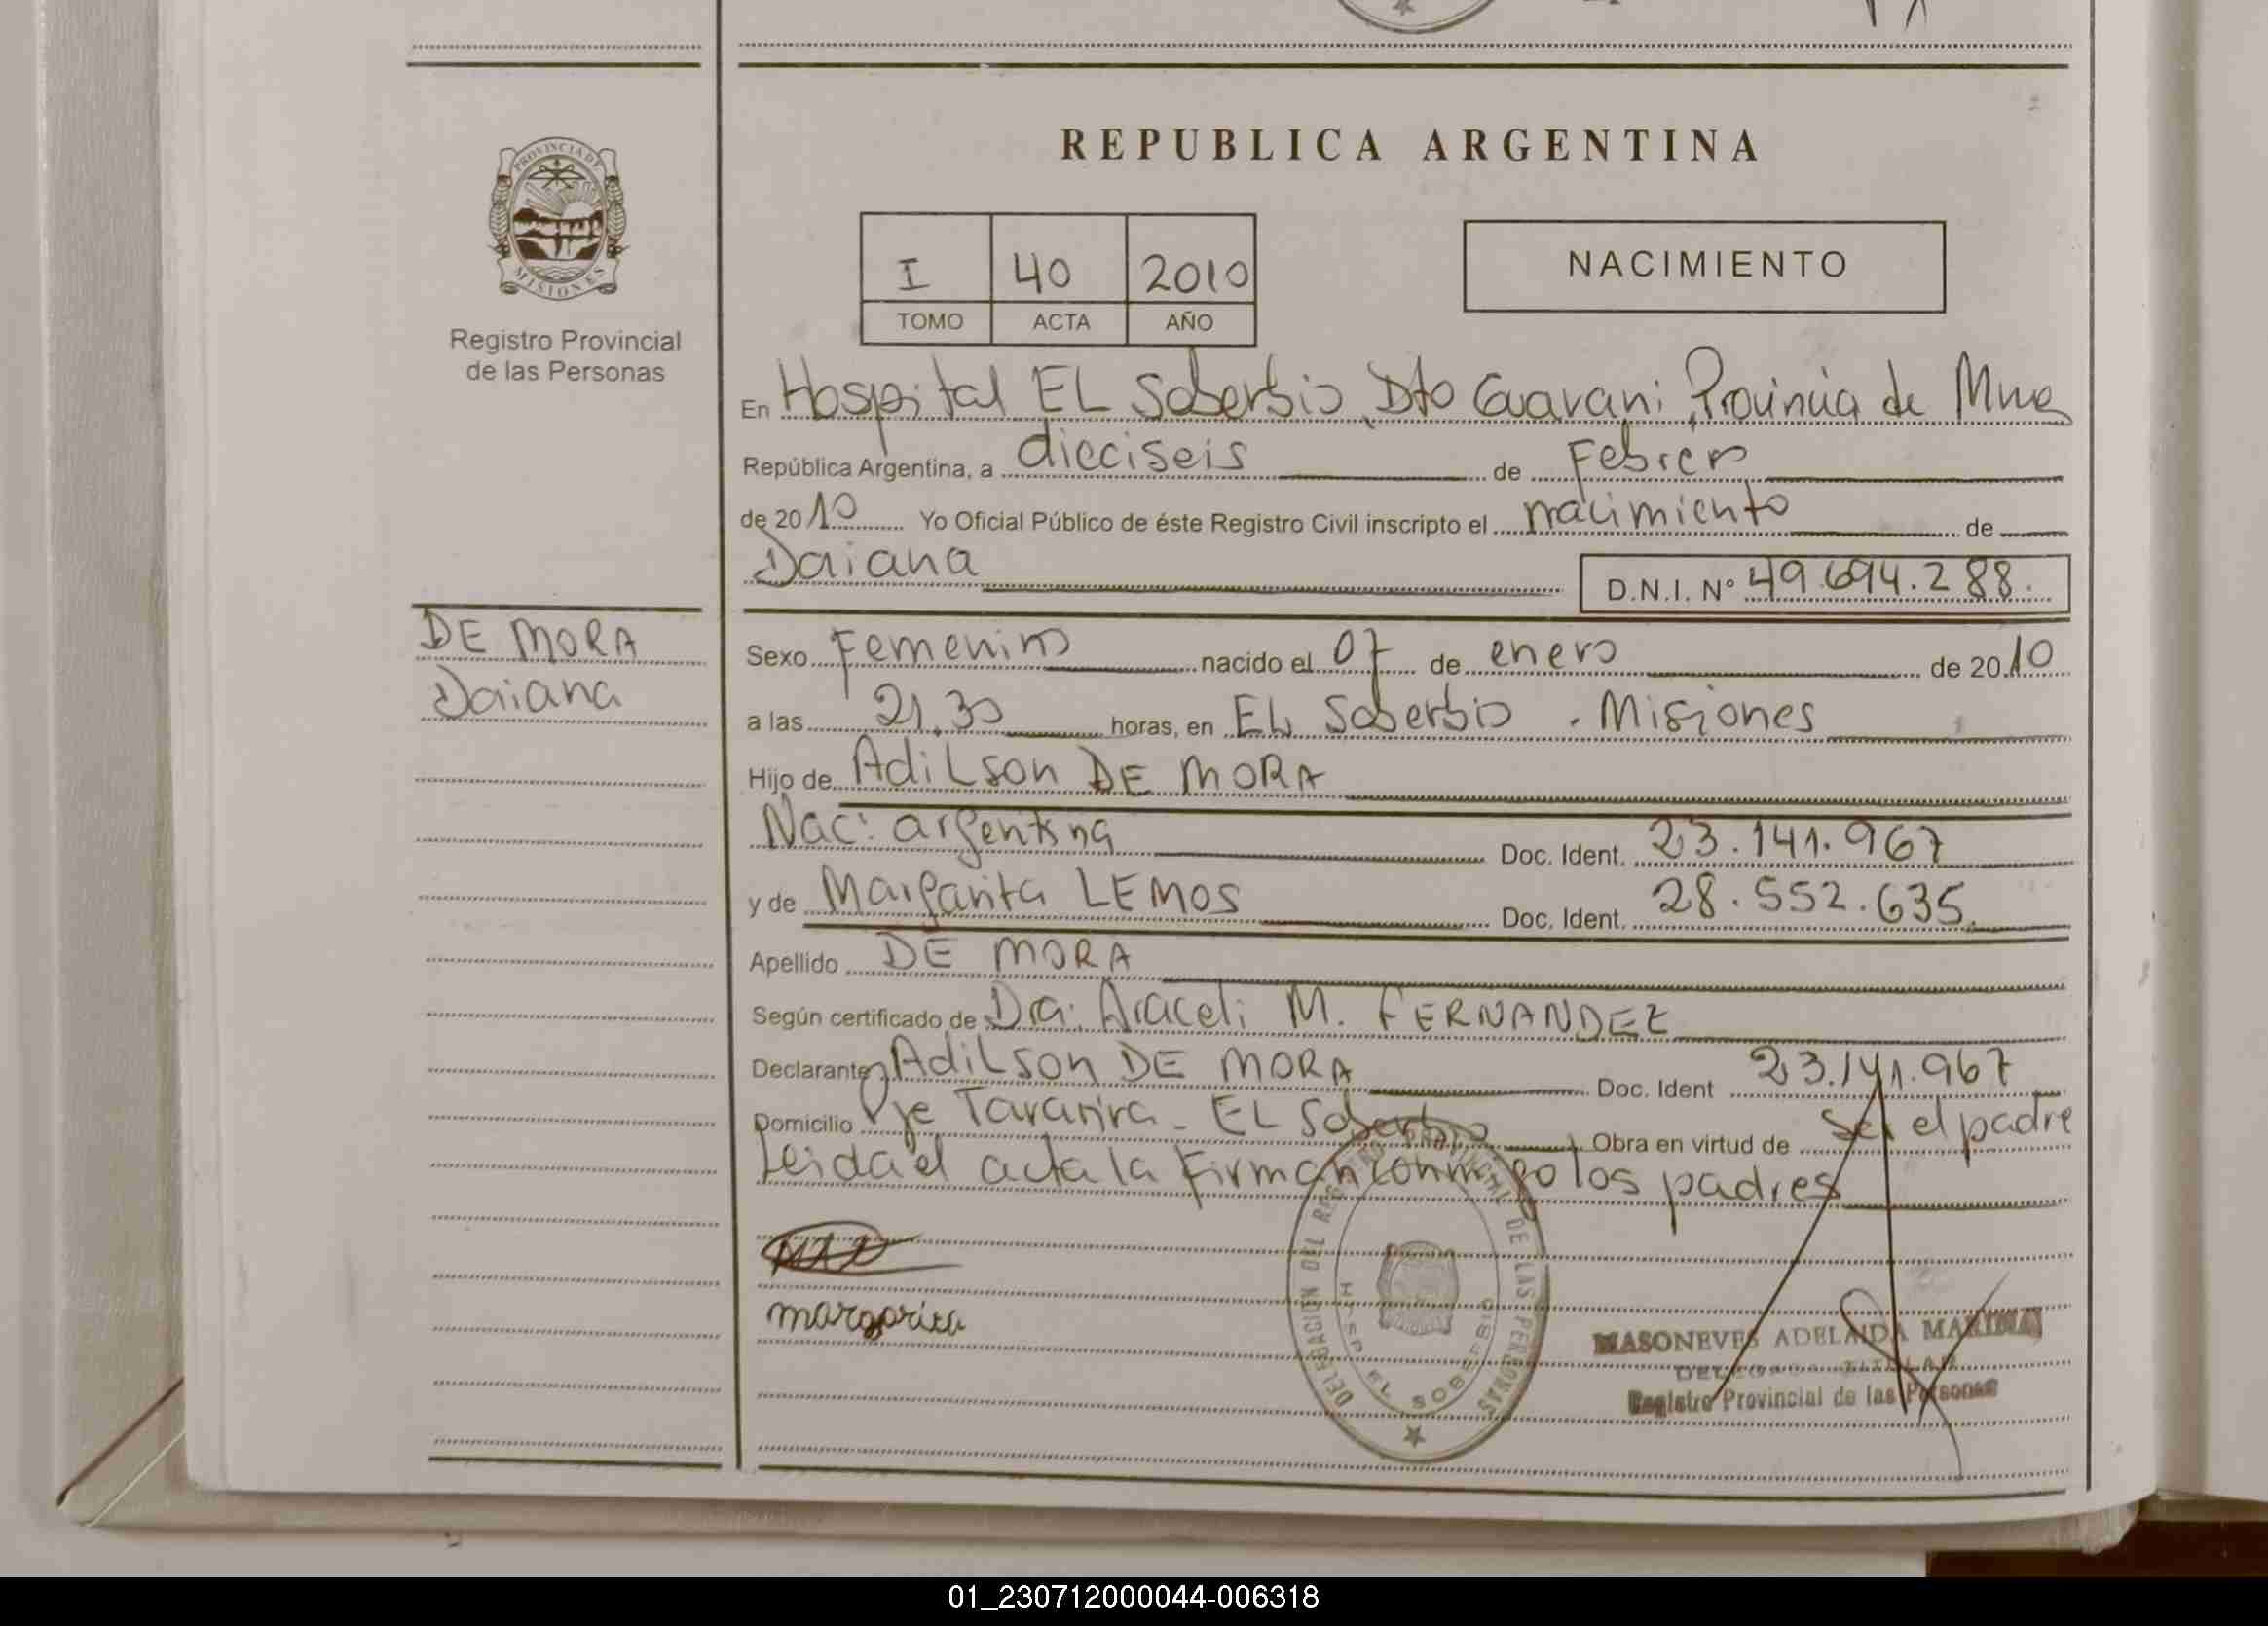 PROVINCIA DE
MISIONES
Registro Provincial
de las Personas
REPUBLICA ARGENTINA
I 40 2010
TOMO ACTA AÑO
NACIMIENTO
En Hospital EL Soberbio, Dto Guarani, Provincia de Mnes
República Argentina, a dieciseis de Febrero
de 2010 Yo Oficial Público de éste Registro Civil inscripto el nacimiento de
Daiana D.N.I. Nº 49.694.288.
DE MORA
Daiana
Sexo Femenino nacido el 07 de enero de 2010
a las 21,30 horas, en EL Soberbio . Misiones
Hijo de Adilson DE MORA
Nac: argentina Doc. Ident. 23.141.967
y de Margarita LEMOS Doc. Ident. 28.552.635.
Apellido DE MORA
Según certificado de Dra: Araceli M. FERNANDEZ
Declarante Adilson DE MORA Doc. Ident 23.141.967
Domicilio Pje Tararira - EL Soberbio Obra en virtud de Ser el padre
Leida el acta la Firman conmigo los padres
margarita
DELEGACION DEL REGISTRO PROVINCIAL DE LAS PERSONAS
HOSP. EL SOBERBIO
MASONEVES ADELAIDA MARINA
DELEGADA TITULAR
Registro Provincial de las Personas
01_230712000044-006318